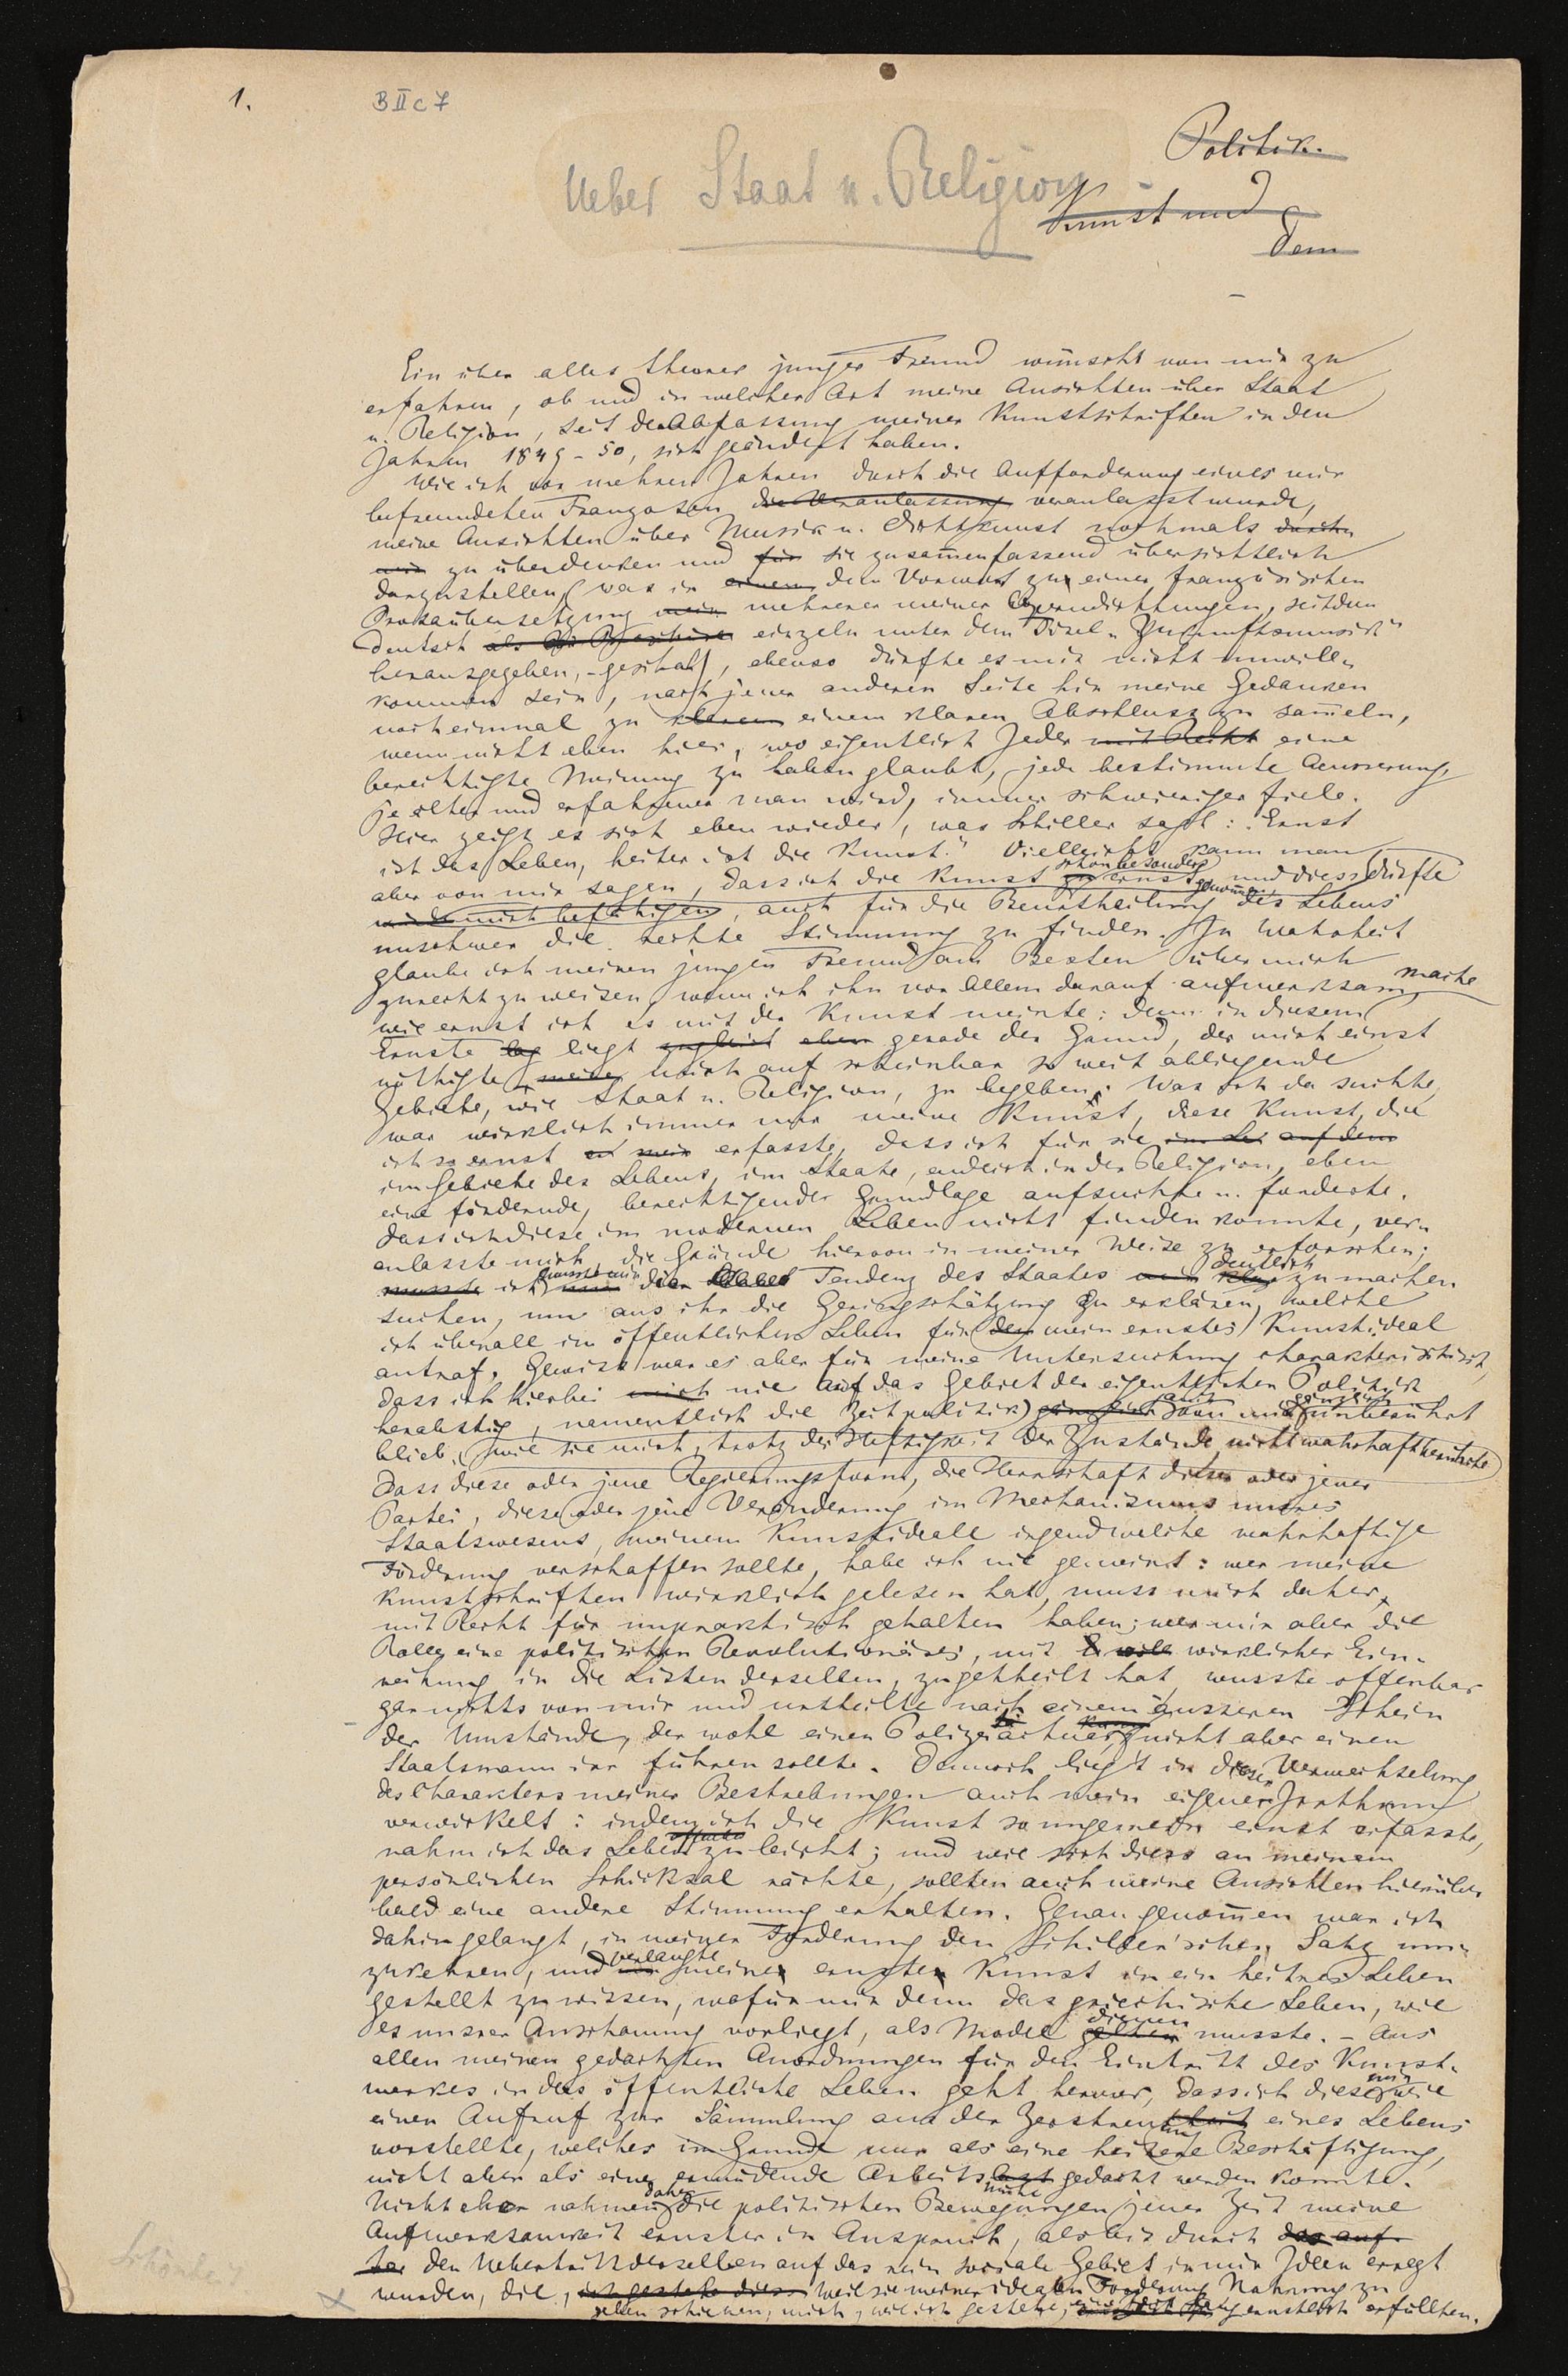 1.
B II c 7
Politik.
Ueber Staat u. Religion.
Kunst und
Dem
Ein über alles theurer junger Freund wünscht von mir zu
erfahren, ob und in welcher Art meine Ansichten über Staat
u. Religion, seit der Abfassung meiner Kunstschriften in den
Jahren 1849-50, sich geändert haben.
Wie ich vor mehren Jahren durch die Aufforderung eines mir
befreundeten Franzosen die Veranlassung veranlasst wurde,
meine Ansichten über Musik u. Dichtkunst nochmals durch
mir zu überdenken und für sie zusam̅enfassend übersichtlich
darzustellen, (was in einem dem Vorwort zu einer französischen
Prosaübersetzung mein mehrerer meiner Operndichtungen, seitdem
deutsch als einzeln unter dem Titel „Zukunftsmusik"
herausgegeben, - geschah), ebenso dürfte es mir nicht unwill-
kommen sein, nach jener anderen Seite hin meine Gedanken
noch einmal zu klaren einem klaren Abschluss zu sam̅eln,
wenn nicht eben hier, wo eigentlich Jeder mit Recht eine
berechtigte Meinung zu haben glaubt, jede bestimmte Aeusserung,
je älter und erfahrener man wird, immer schwieriger fiele.
Hier zeigt es sich eben wieder, was Schiller sagt: „Ernst
ist das Leben, heiter ist die Kunst." Vielleicht kann man
aber von mir sagen, dass ich die Kunst zu ernst schon besonders genom̅en, und diess dürfte
würde mich befähigen, auch für die Beurtheilung des Lebens
unschwer die rechte Stimmung zu finden. In Wahrheit
glaube ich meinen jungen Freund am Besten über mich
zurecht zu weisen, wenn ich ihn vor Allem darauf aufmerksam mache
wie ernst ich es mit der Kunst meinte: denn in diesem
Ernste lag liegt zugleich eben gerade der Grund, der mich einst
nöthigte, meine mich auf scheinbar so weit abliegende
Gebiete, wie Staat u. Religion, zu begeben. Was ich da suchte,
war wirklich immer nur meine Kunst, diese Kunst, die
ich so ernst es mein erfasste, dass ich für sie im Le auf dem
im Gebiete des Lebens, im Staate, endlich in der Religion, eben
eine fördernde, berechtigende Grundlage aufsuchte u. forderte.
Dass ich diese im modernen Leben nicht finden konnte, ver-
anlasste mich, die Gründe hiervon in meiner Weise zu erforschen;
musste ich musste mir die Tendenz des Staates mir klar deutlich zu machen
suchen, um aus ihr die Geringschätzung zu erklären, welche
ich überall im öffentlichen Leben für den mein ernstes Kunstideal
antraf. Gewiss war es aber für meine Untersuchung charakteristisch,
dass ich hierbei mich nie auf das Gebiet der eigentlichen Politik
herabstieg, namentlich die Zeitpolitik, auch mich gänzlich unberührt
blieb, wie sie mich, trotz der Heftigkeit der Zustände, nicht wahrhaft berührte
Dass diese oder jene Regierungsform, die Herrschaft dieser oder jener
Partei, diese oder jene Veränderung im Mechanismus unsres
Staatswesens, meinem Kunstideale irgendwelche wahrhaftige
Förderung verschaffen sollte, habe ich nie gemeint: wer meine
Kunstschriften wirklich gelesen hat, muss mich daher
mit Recht für unpraktisch gehalten haben; wer mir aber die
Rolle eine politischen Revolutionärs, mit wirklicher Ein-
reihung in die Listen derselben, zugetheilt hat, wusste offenbar
gar nichts von mir und urtheilte nach einem äusseren Schein
der Umstände, der wohl einen Polizeiactuar, nicht aber einen
Staatsmann irr führen sollte. Dennoch liegt in dieser Verwechselung
des Charakters meiner Bestrebungen auch mein eigener Irrthum
verwickelt: indem ich die Kunst so ungemein ernst erfasste,
nahm ich das Leben zu leicht; und wie sich diess an meinem
persönlichen Schicksal rächte, sollten auch meine Ansichten hierüber
bald eine andere Stimmung erhalten. Genau genom̅en war ich
dahin gelangt, in meiner Forderung den Schiller'schen Satz um-
zukehren, und verlangte meine ernste Kunst in ein heitres Leben
gestellt zu wissen, wofür mir denn das griechische Leben, wie
es unsrer Anschauung vorliegt, als Model gelten dienen musste. - Aus
allen meinen gedachten Anordnungen für den Eintritt des Kunst-
werkes in das öffentliche Leben geht hervor, dass ich diese mir wie
einen Aufruf zur Sammlung aus der Zerstreuung eines Lebens
vorstellte, welches im Grunde nur als eine heitere Beschäftigung,
nicht aber als eine ermüdende Arbeitslast mühe gedacht werden konnte.
Nicht eher nahmen daher die politischen Bewegungen jener Zeit meine
Aufmerksamkeit ernster in Anspruch, als bis durch das auf
den Uebertritt derselben auf das rein sociale Gebiet in mir Ideen erregt
wurden, die, ich gestehe diess weil sie meiner idealen Forderung Nahrung zu
geben schienen, mich, wie ich gestehe, eine Zeit lang ernstlich erfüllten.